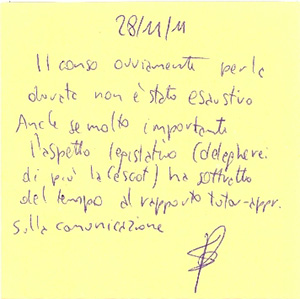 28/11/11
Il corso ovviamente per la
durata non è stato esaustivo
Anche se molto importante
l'aspetto legislativo (delegherei
di più la (escot) ha sottratto
del tempo al rapporto tutor-appr.
sulla comunicazione